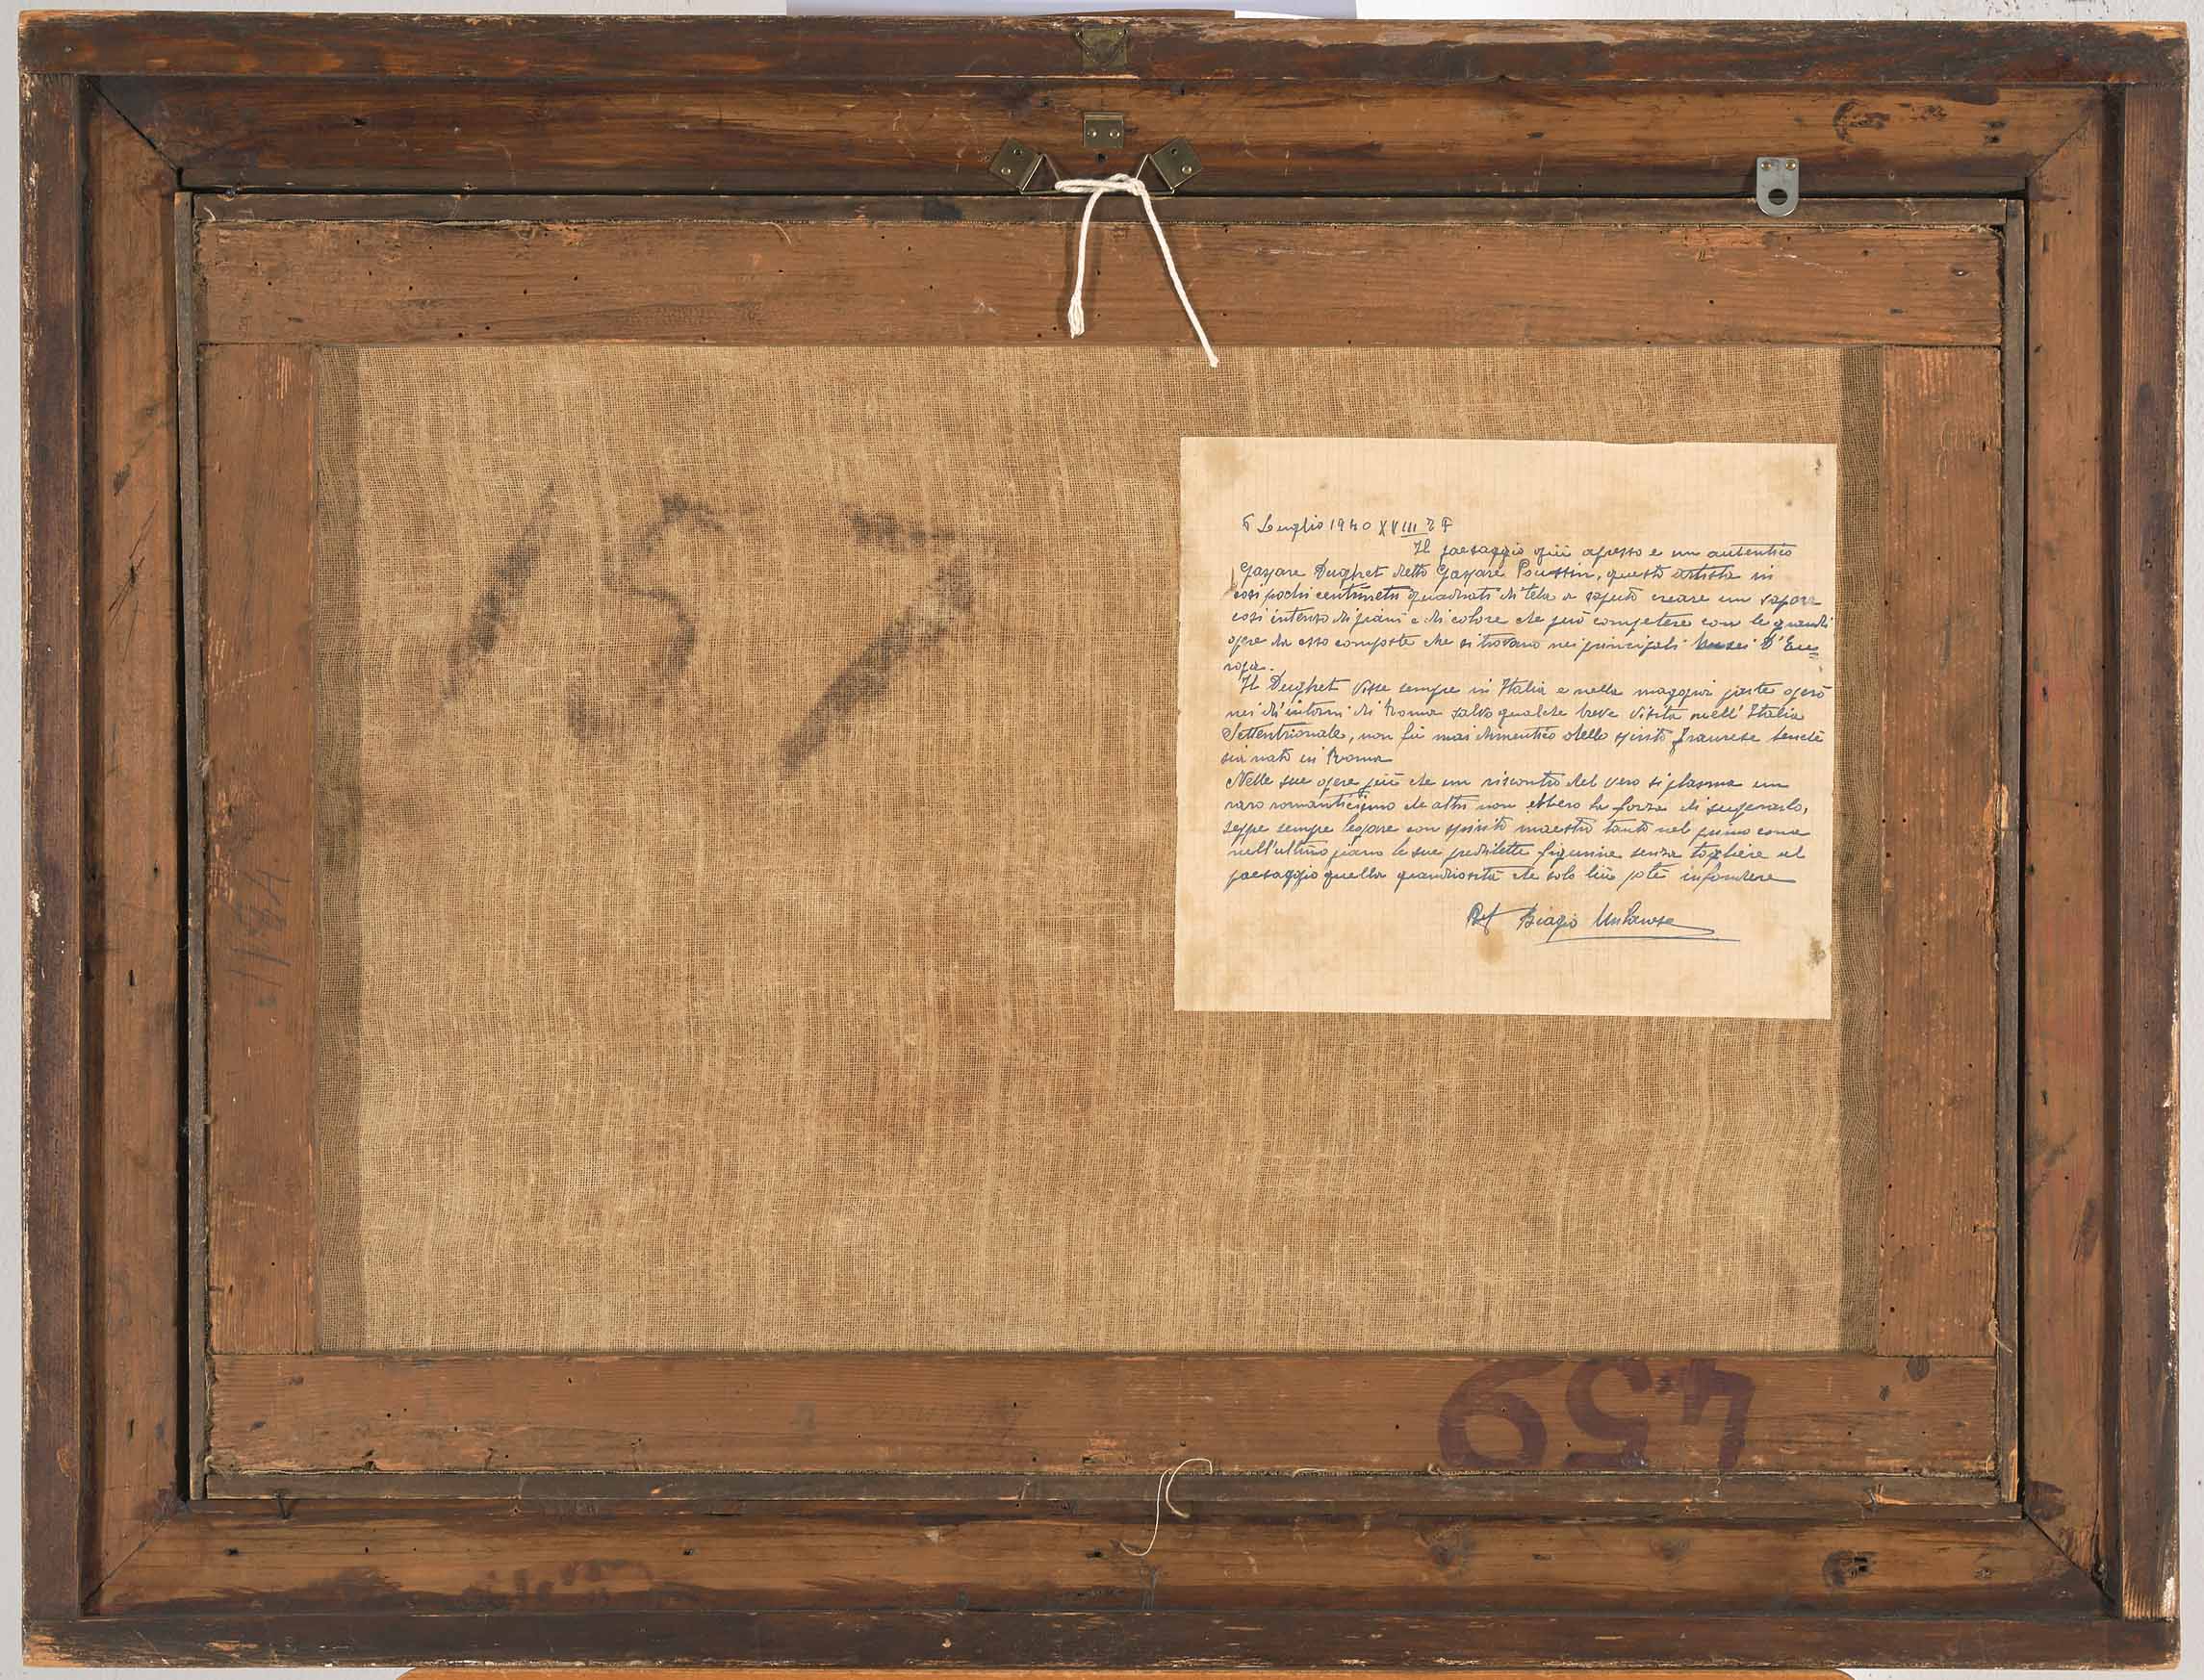 157
6 Luglio 1940 XVIII
Il paesaggio qui apresso e un autentico
Gaspare Dughet detto Gaspare Poussin, questo artista in
cosi pochi centimetri quadrati di tela a saputo creare un sapore
cosi intenso di piani e di colore che può competere con le grandi
opere da esso composte che si trovano nei principali Musei D'Eu=
ropa.
Il Dughet visse sempre in Italia e nella maggior parte operò
nei d'intorni di Roma salvo qualche breve visita nell'Italia
Settentrionale, non fu mai dimentico dello spirito Francese benchè
sia nato in Roma
Nelle sue opere più che un riscontro del vero si plasma un
raro romanticismo che altri non ebbero la forza di superarlo,
seppe sempre legare con spirito maestro tanto nel primo come
nell'ultimo piano le sue predilette figurine senza togliere al
paesaggio quella grandiosità che solo lui potè infondere
Prof Biagio
459